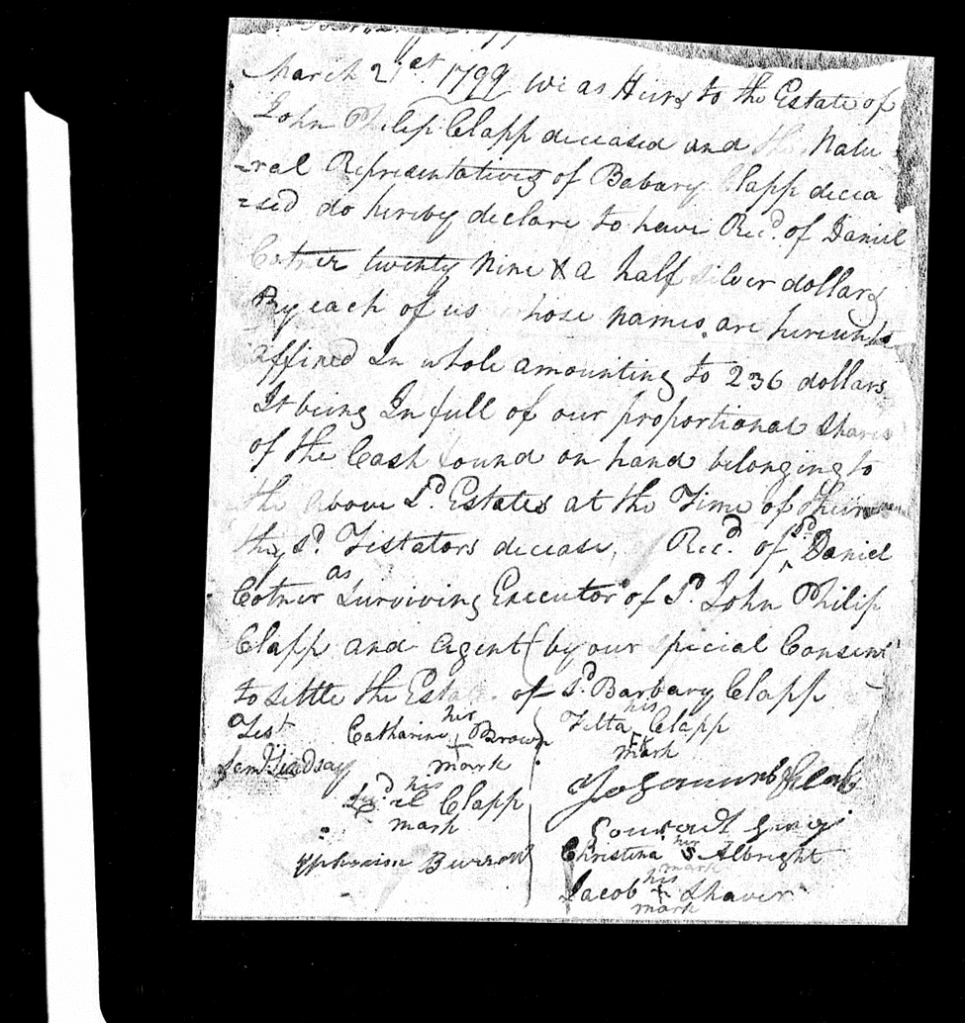 March 21st 1799 we as Heirs to the Estate of
John Philip Clapp deceased and the Natu
=ral Representatives of Babary Clapp decea
=sed do hereby declare to have Recd. of Daniel
Cotner twenty Nine & a half silver dollars
By each of us hose names are hereunto
affixed In whole amounting to 236 dollars
It being In full of our proportional Shares
of the Cash found on hand belonging to
the above Sd. Estates at the Time of their
the sd. Testators decease, Recd. of sd. Daniel
Cotner as Surviving Executor of Sd. John Philip
Clapp and Agent (by our special Consent
to settle the Estate of Sd. Barbary Clapp
Test
Catharine her + mark Brown
his Clapp mark
Lindsay
his Clapp mark
Burrow
Christina her S mark Albright
Jacob his + mark Shaver